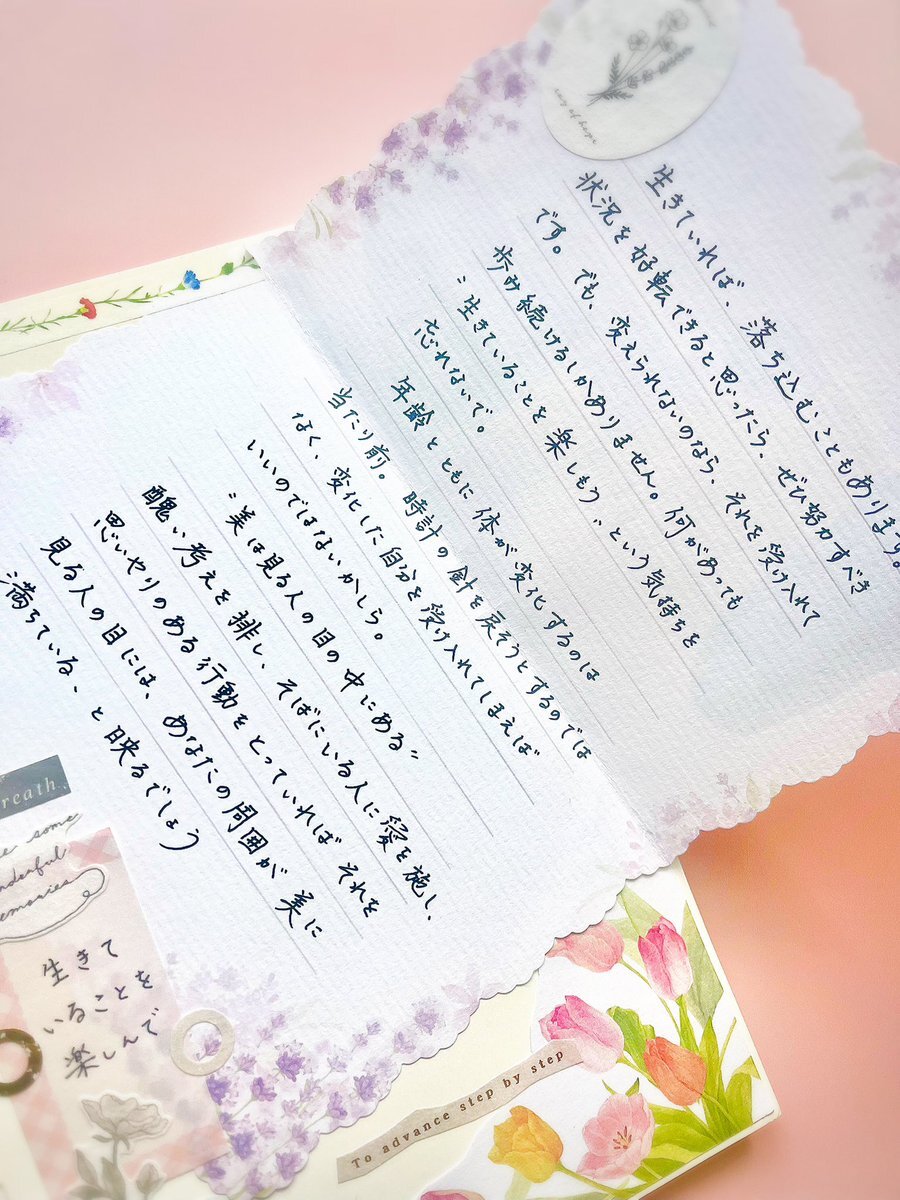 生きていれば、落ち込むこともあります。
状況を好転できると思ったら、ぜひ努力すべき
です。でも、変えられないのなら、それを受け入れて
歩み続けるしかありません。何があっても
〝生きていることを楽しもう〟という気持ちを
忘れないで。
年齢とともに体が変化するのは
当たり前。時計の針を戻そうとするのでは
なく、変化した自分を受け入れてしまえば
いいのではないかしら。
〝美は見る人の目の中にある〟
醜い考えを排し、そばにいる人に愛を施し、
思いやりのある行動をとっていれば それを
見る人の目には、あなたの周囲が美に
満ちている、と映るでしょう
reath
some
memories
生きて
いることを
楽しんで
To advance step by step